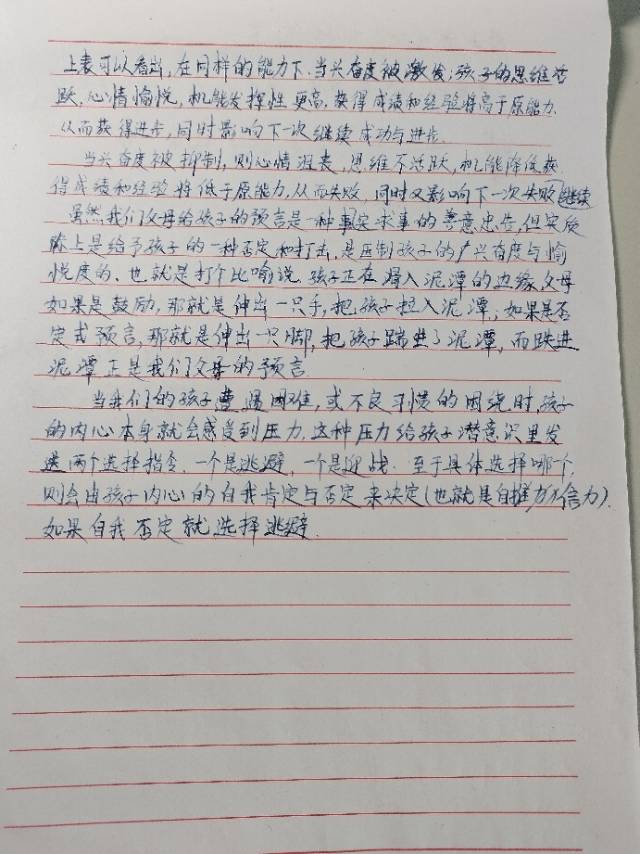 上表可以看出,在同样的能力下,当兴奋度被激发,孩子的思维活
跃,心情愉悦,机能发挥性更高,获得成绩和经验将高于原能力.
从而获得进步,同时影响下一次继续成功与进步.
当兴奋度被抑制,则心情沮丧,思维不活跃,机能降低获
得成绩和经验将低于原能力,从而失败,同时又影响下一次失败继续
虽然我们父母给孩子的预言是一种事实求事的善意忠告,但实质
际上是给予孩子的一种否定和打击,是压制孩子的兴奋度与愉
悦度的.也就是打个比喻说.孩子正在滑入泥潭的边缘,父母
如果是鼓励,那就是伸出一只手,把孩子拉入泥潭;如果是否
定式预言,那就是伸出一只脚,把孩子踹进了泥潭,而跌进
泥潭正是我们父母的预言
当我们的孩子遭遇困难,或不良习惯的困绕时,孩子
的内心本身就会感受到压力.这种压力给孩子潜意识里发
送两个选择指令.一个是逃避,一个是迎战.至于具体选择哪个,
则会由孩子内心的自我肯定与否定来决定(也就是自信力).
如果自我否定就选择逃避.